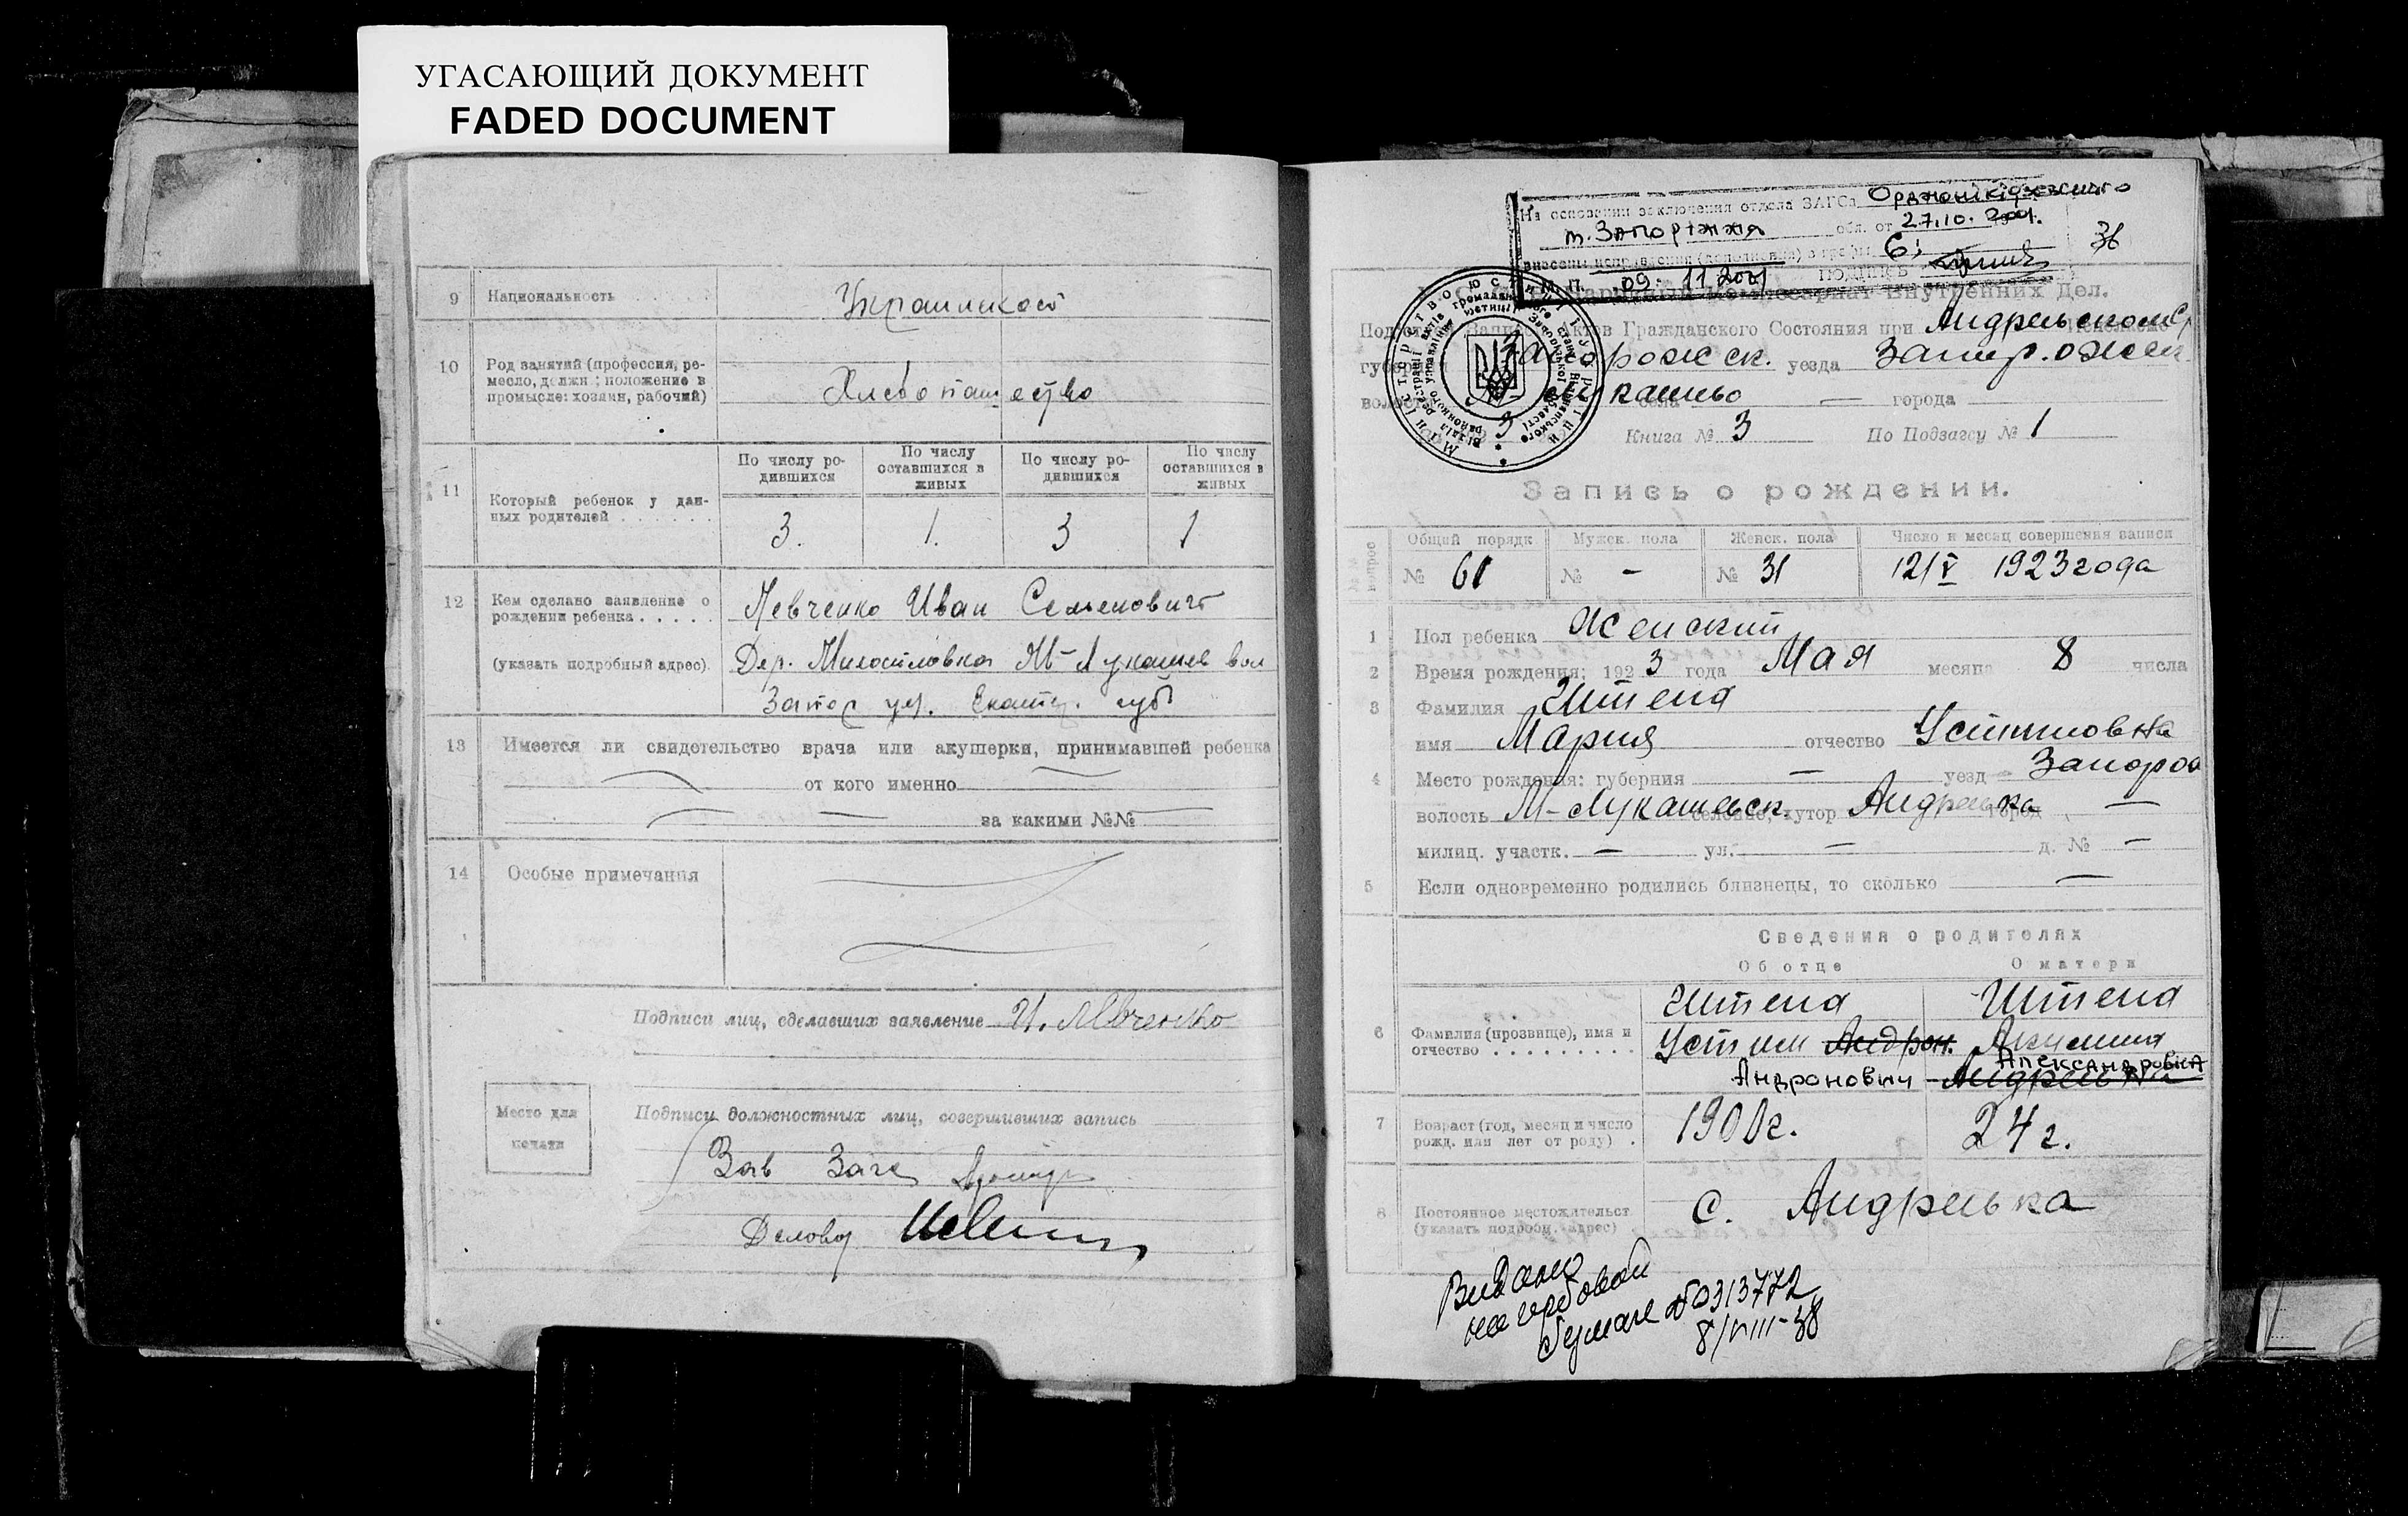 УГАСАЮЩИЙ ДОКУМЕНТ
FADED DOCUMENT
9 Национальность Украинской
10 Род занятий (профессия, ре-
месло, должн.; положение в
промысле: хозяин, рабочий)
Хлебопашество
11 Который ребенок у дан-
ных родителей
По числу ро-
дившихся
По числу
оставшихся в
живых
По числу ро-
дившихся
По числу
оставшихся в
живых
3. 1. 3 1
12 Кем сделано заявление о
рождении ребенка
(указать подробный адрес)
Левченко Иван Семенович
Дер. Милостловка М-Лукашев вол
Запор уез. Екат. губ
13 Имеется ли свидетельство врача или акушерки, принимавшей ребенка
от кого именно
за какими №№
14 Особые примечания
Подписи лиц, сделавших заявление И. Левченко
Место для
печати
Подписи должностных лиц, совершивших запись
Зав Загс
Деловод
На основании заключения отдела ЗАГСа Орджонікідзевського
м. Запоріжжя обл. от 27.10. 2001.
внесены исправления (дополнения) в графы 6;
М. П. 09. 11 2001 подпись
36
Народный Комиссариат Внутренних Дел.
Подотдел Записи Актов Гражданского Состояния при Андреевском
губернии Запорожск. уезда Запорож
волости Лукашево села — города
3 Книга № 3 По Подзагсу № 1
Запись о рождении.
Общий порядк. Мужск. пола Женск. пола Число и месяц совершения записи
№ 61 № - № 31 12/V 1923 года
1 Пол ребенка Женский
2 Время рождения: 1923 года Мая месяца 8 числа
3 Фамилия Штепа
имя Мария отчество Устиновна
4 Место рождения: губерния — уезд Запорож
волость М-Лукашевск. селение, хутор Андреевка город —
милиц. участк. — ул. — д. № —
5 Если одновременно родились близнецы, то сколько —
Сведения о родителях
Об отце О матери
6 Фамилия (прозвище), имя и
отчество
Штепа Штепа
Устин Андрон. Акулина
Андронович Александровна
7 Возраст (год, месяц и число
рожд. или лет от роду)
1900г. 24 г.
8 Постоянное местожительст.
(указать подробн. адрес)
с. Андреевка
Видано
на гербовой
бумаге № 0313772
8/VIII-38